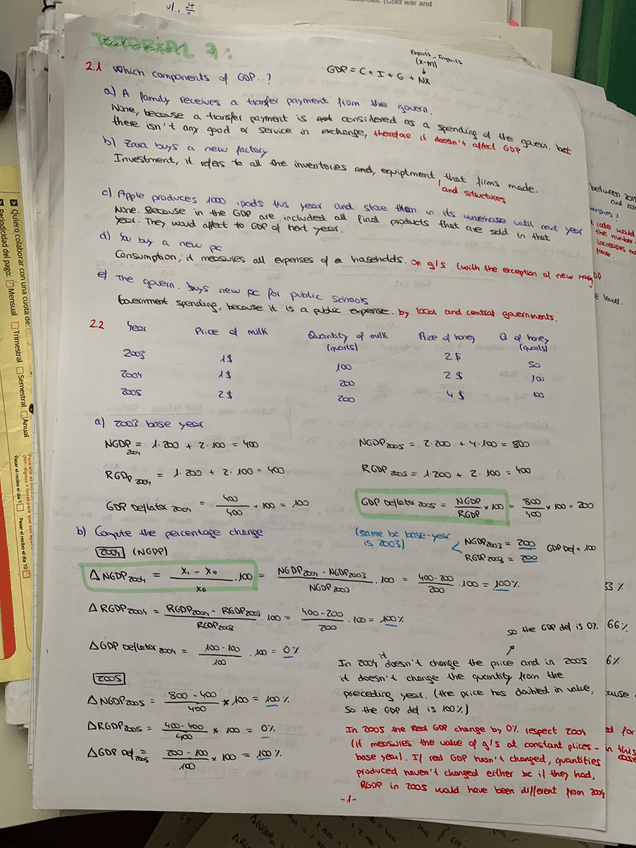 2.1 Which components of GDP..?
Exports - Imports
(X-M)
GDP = C + I + G + NX
a) A family receives a transfer payment from the govern.
None, because a transfer payment is not considered as a spending of the govern. bet
there isn't any good or service in exchange, therefore it doesn't affect GDP
b) Zara buys a new factory
Investment, it refers to all the inventories and, equiptment, that firms made.
and structures
c) Apple produces 1000 ipods this year and store them in its warehouse until next year
None. Because in the GDP are included all final products that are sold in that
year. They would affect to GDP of next year.
d) You buy a new pc
Consumption, it measures all expenses of a haseholds. on g/s (with the exception of new
e) The govern. buys new pc for public schools
Government spending, because it is a public expense. by local and central governments.
2.2 Year Price of milk Quantity of milk (quarts) Price of honey Q of honey (quarts)
2003 1$ 100 2$ 50
2004 1$ 200 2$ 100
2005 2$ 200 4$ 100
a) 2003 base year
NGDP 2004 = 1·200 + 2·100 = 400
NGDP 2005 = 2·200 + 4·100 = 800
RGDP 2004 = 1·200 + 2·100 = 400
RGDP 2005 = 1·200 + 2·100 = 400
GDP Deflator 2004 = 400/400 · 100 = 100
GDP Deflator 2005 = NGDP/RGDP × 100 = 800/400 × 100 = 200
b) Compute the percentage change
(same bc base-year is 2003)
NGDP 2003 = 200
RGDP 2003 = 200
GDP Def = 100
2004 (NGDP)
Δ NGDP 2004 = X1 - X0/X0 · 100 = NGDP 2004 - NGDP 2003/NGDP 2003 · 100 = 400-200/200 · 100 = 100%
Δ RGDP 2004 = RGDP 2004 - RGDP 2003/RGDP 2003 · 100 = 400-200/200 · 100 = 100%
Δ GDP Deflator 2004 = 100-100/100 · 100 = 0%
so the GDP def is 0%
it
In 2004 doesn't change the price and in 2005
it doesn't change the quantity from the
preceding year. (the price has doubled in value,
so the GDP def is 100%)
2005
Δ NGDP 2005 = 800-400/400 × 100 = 100%
Δ RGDP 2005 = 400-400/400 × 100 = 0%
Δ GDP Def. 2005 = 200-100/100 × 100 = 100%
In 2005 the Real GDP change by 0% respect 2004
(it measures the value of g/s at constant prices -
base year). If real GDP hasn't changed, quantities
produced haven't changed either bc if they had,
RGDP in 2005 would have been different from 2004
-1-
Quiero colaborar con una cuota de:
Periodicidad del pago: Mensual Trimestral Semestral Anual
Pasar el recibo el día 1
Pasar el recibo el día 10
(Cold war and
between
the number
increases
66%
6%